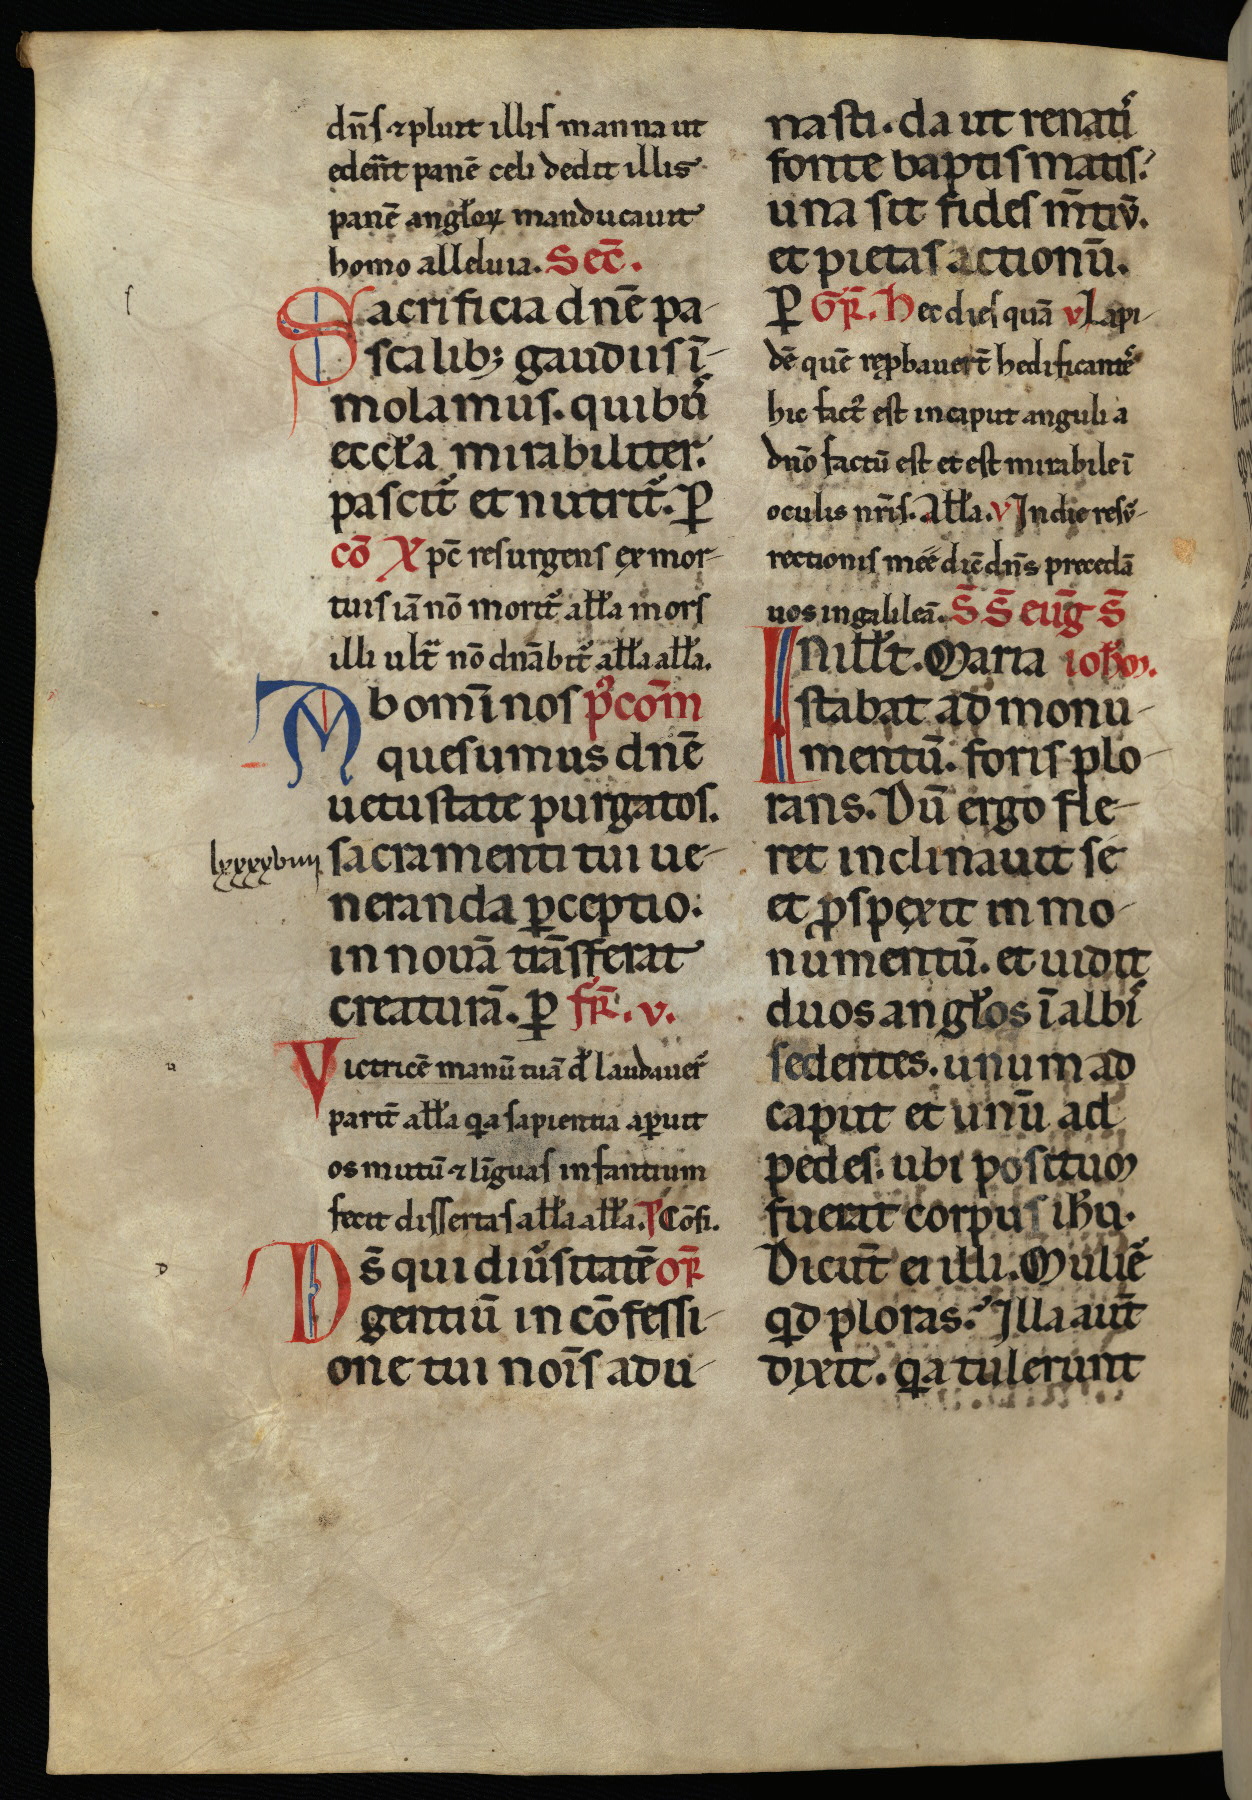 dn̄s ⁊ pluit illis manna ut
edēr̄t panē celi dedit illis
panē angl̄oꝝ manducauit
homo alleluia. Sec̄.
Sacrificia dn̄e pa-
scalib; gaudiis ī-
molamus. quib᷒
eccl̄a mirabiliter.
pascit᷑ et nutrit᷑. ꝑ
cō Xp̄c resurgens ex mor-
tuis iā nō morit᷑ all̄a mors
illi ult᷑ nō dn̄abit᷑ all̄a all̄a.
Ab omīnos p᷒com̄
quesumus dn̄e
uetustate purgatos.
lxxxxviiii. sacramenti tui ue-
neranda ꝑceptio.
in nouā trāsferat
creaturā. ꝑ fr̄. v.
Victricē manū tuā d̄ laudauer᷑
parit̄ all̄a qꝛa sapientia aꝑuit
os mutū ⁊ līguas infantium
fecit dissertas all̄a all̄a. P̄ Cōfi.
Ds̄ qui diū᷑sitatē or̄
gentiū in cōfessi-
one tui noīs adu-
nasti. da ut renati᷒
fonte baptismatis.
una sit fides m̄tiū.
et pietas actionū.
ꝑ Gr̄. Hec dies quā v Lapi-
dē quē rep̱bauer̄t hedificante᷒
hic fact᷒ est in caput anguli a
dn̄o factū est et est mirabile ī
oculis nr̄is. All̄a. v In die resu᷑-
rectionis mee dic̄ dn̄s precedā
uos in galileā. S̄ S̄ eūg S̄
In ill̄t. Maria ioh̄m.
stabat ad monu-
mentū. foris plo-
rans. Dū ergo fle-
ret inclinauit se
et ꝓspexit in mo-
numentū. et uidit
duos angl̄os ī albi᷒
sedentes. unum ad
caput et unū ad
pedes. ubi positum
fuerat corpus ih̄u.
Dicūt ei illi. Mulie᷑
qd ploras? Illa aut̄
dixit. qꝛa tulerunt
s
u
D